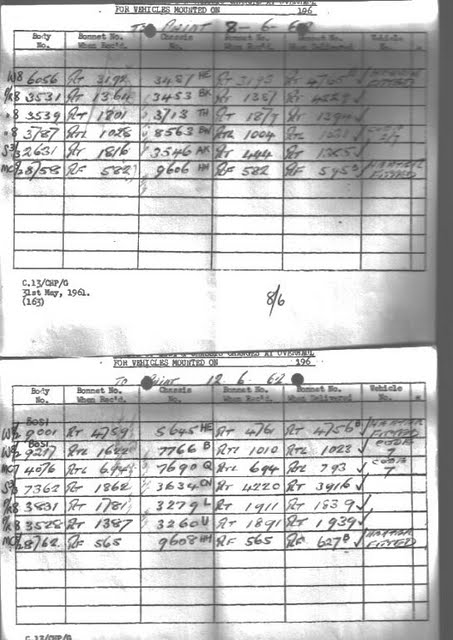 FOR VEHICLES MOUNTED ON 196
TO PAINT 8-6-62
Body No. Bonnet No. When Rec'd. Chassis No. Bonnet No. Vehicle No.
W8 6056 RT 3192 3451 HE RT 3193 RT 4765 HEATER FITTED
8 3531 RT 1364 3453 BK RT 1387 RT 4229 ✓
"8 3539 RT 1801 3/13 TH RT 1817 RT 1394 ✓
"8 3787 RTL 1028 8563 BN RTL 1004 RTL
2631 RT 1816 3546 AK RT 444 RT 1365 ✓
8758 RF 582 9606 HH RF 582 RF 595 HEATER FITTED
C.13/CHP/G
31st May, 1961.
(163)
8/6
FOR VEHICLES MOUNTED ON 196
TO PAINT 12 6 62
Body No. Bonnet No. When Rec'd. Chassis No. Bonnet No. When Delivered Vehicle No.
BOSI
9001 RT 4759 5645 HE RT 4761 RT 4756 B HEATER FITTED
BOSI
9217 RTL 1622 7766 B RTL 1010 RTL 1023 ✓ CODE 7
4076 RTL 694 7690 Q RTL 694 RTL 793 ✓ CODE 7
7362 RT 1862 3634 CN RT 4220 RT 3916 ✓
8 3831 RT 1781 3279 L RT 1911 RT 1839 ✓
8 3528 RT 1387 3260 U RT 1891 RT 1939 ✓
8762 RF 565 9608 HH RF 565 RF 627 B HEATER FITTED
C.13/CHP/G